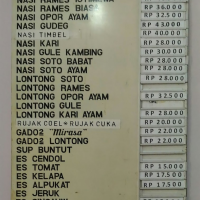 NASI RAMES BIASA RP 36.000
NASI OPOR AYAM RP 32.500
NASI GUDEG RP 43.000
NASI TIMBEL RP 40.000
NASI KARI RP 28.000
NASI GULE KAMBING RP 30.000
NASI SOTO BABAT RP 28.000
NASI SOTO AYAM RP 28.000
LONTONG RAMES
LONTONG OPOR AYAM RP 32.500
LONTONG GULE
LONTONG KARI AYAM RP 28.000
RUJAK COEL * RUJAK CUKA RP 22.000
GADO2 "Mirasa" RP 22.000
GADO2 LONTONG RP 22.000
SUP BUNTUT
ES CENDOL RP 15.000
ES TOMAT
ES KELAPA RP 17.500
ES ALPUKAT RP 17.500
ES JERUK